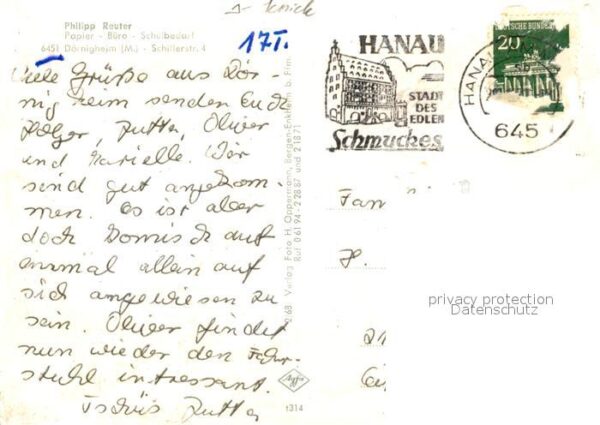 Philipp Reuter
Papier - Büro - Schulbedarf
6451 Dörnigheim (M) - Schillerstr. 4
17 T.
Viele Grüße aus Dör-
nigheim senden Euch
Holger, Jutta, Oliver
und Marielle. Wir
sind gut angekom-
men. Es ist aber
doch komisch auf
einmal allein auf
sich angewiesen zu
sein. Oliver findet
nun wieder den Fahr-
stuhl interessant.
Tschüs Jutta
268 Verlag Foto H. Oppermann, Bergen-Enkheim b. Ffm.
Ruf 06194-22887 und 21871
Agfa
1314
HANAU
STADT
DES
EDLEN
Schmuckes
HANAU
645
DEUTSCHE BUNDES
20
Fam
H.
privacy protection
Datenschutz